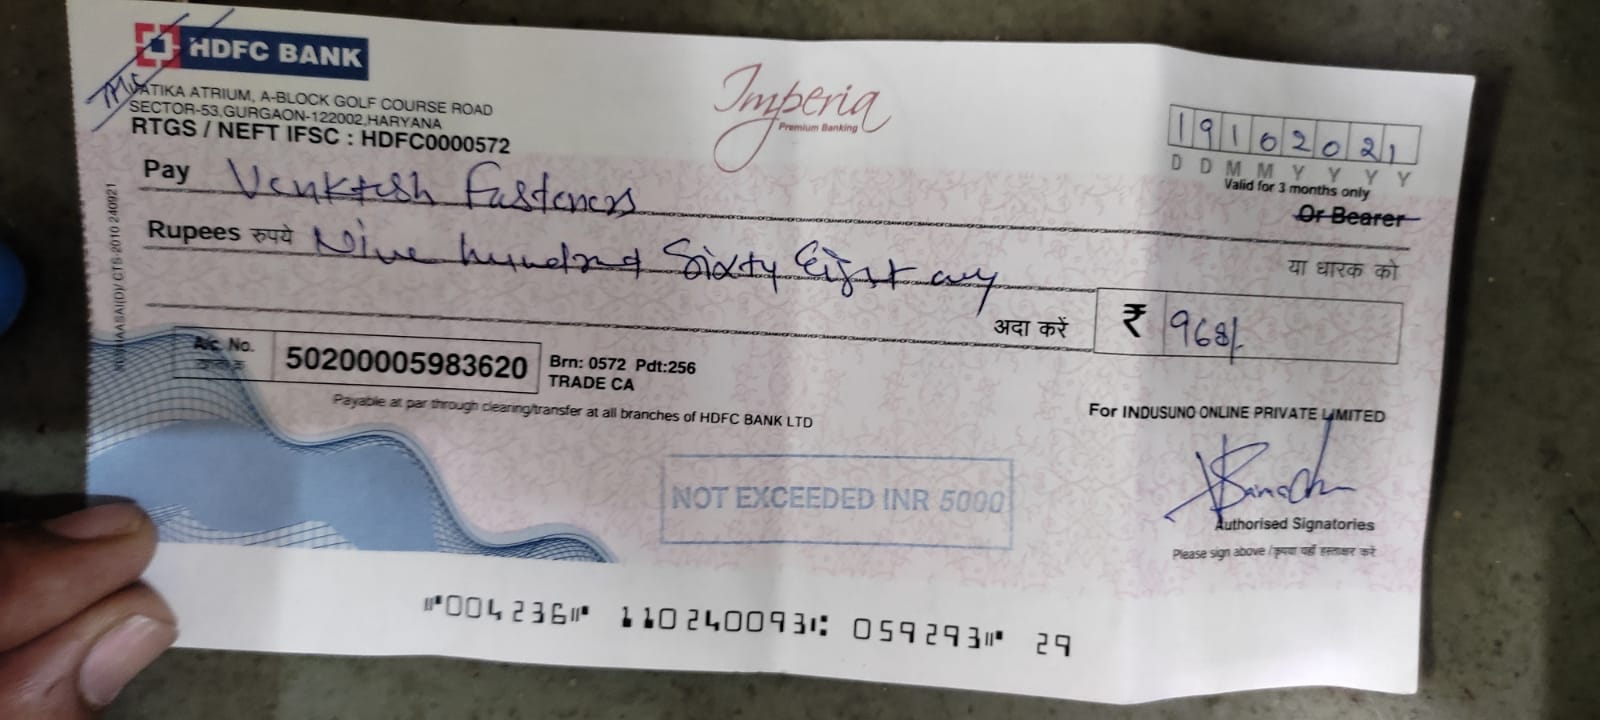 HDFC BANK
VATIKA ATRIUM, A-BLOCK GOLF COURSE ROAD
SECTOR-53,GURGAON-122002,HARYANA
RTGS / NEFT IFSC : HDFC0000572
Imperia
Premium Banking
19102021
D D M M Y Y Y Y
Valid for 3 months only
Or Bearer
या धारक को
Pay Venktesh Fasteners
Rupees रुपये Nine hundred Sixty Eight only
अदा करें ₹ 968/-
A/c. No. 50200005983620 Brn: 0572 Pdt:256
TRADE CA
Payable at par through clearing/transfer at all branches of HDFC BANK LTD
For INDUSUNO ONLINE PRIVATE LIMITED
NOT EXCEEDED INR 5000
Authorised Signatories
Please sign above / कृपया यहाँ हस्ताक्षर करें
CTS-2010 240921
"004236" 110240093: 059293" 29